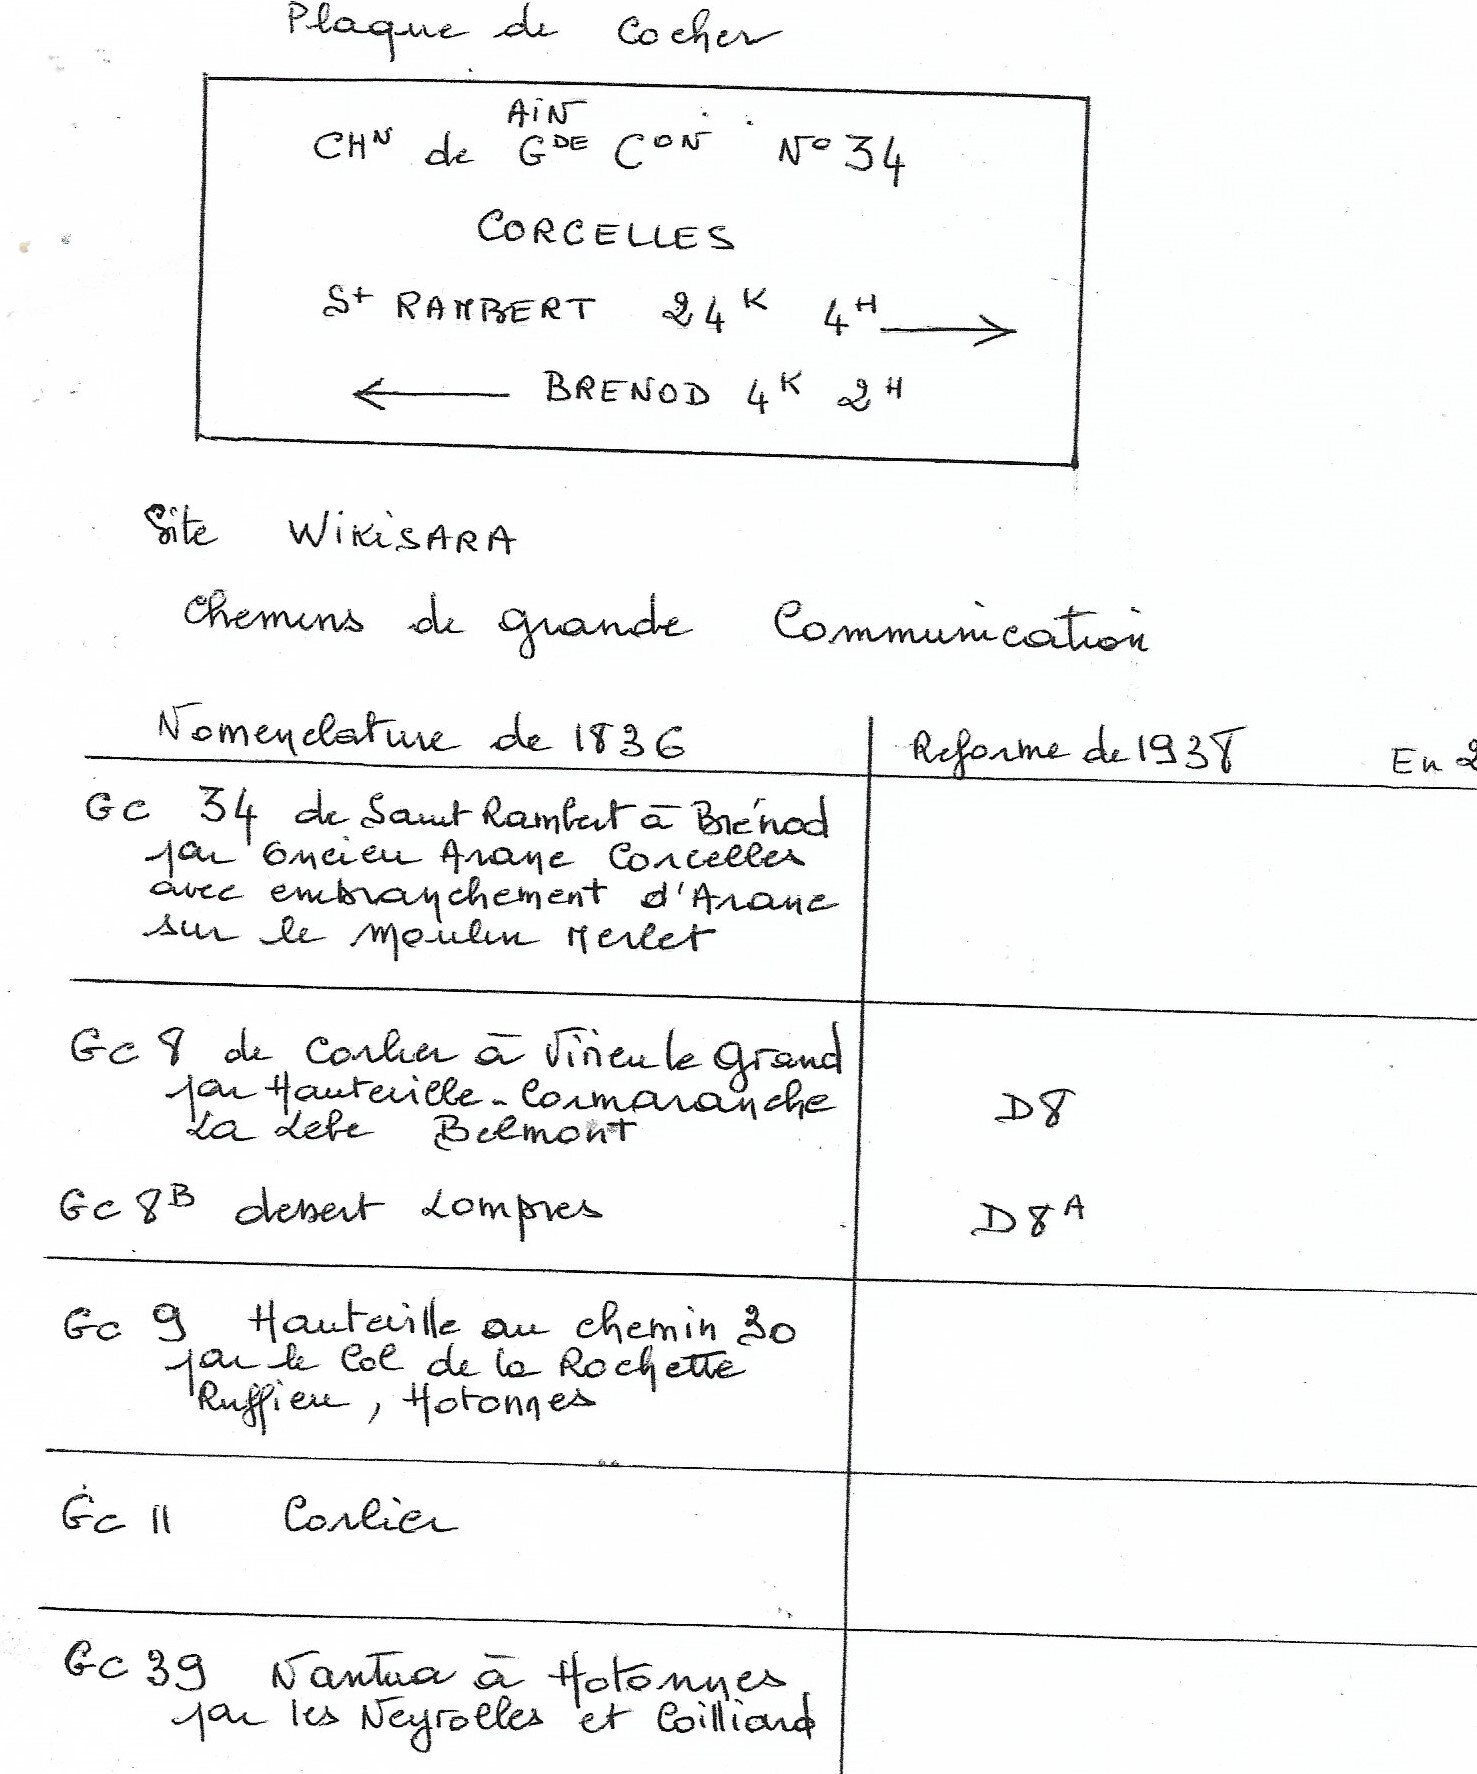 Plaque de Cocher
AIN
CHN de GDE CON No 34
CORCELLES
St RAMBERT 24K 4H →
← BRENOD 4K 2H
Site WIKISARA
Chemins de grande Communication
Nomenclature de 1836 Reforme de 1938 En 2
GC 34 de Saint Rambert à Brénod
par Oncieu Aranc Corcelles
avec embranchement d'Aranc
sur le Moulin Merlet
GC 8 de Corlier à Virieu le Grand
par Hauteville - Cormaranche D8
La Lèbe Belmont
GC 8B dessert Lompnes D8A
GC 9 Hauteville au chemin 30
par le Col de la Rochette
Ruffieu, Hotonnes
GC 11 Corlier
GC 39 Nantua à Hotonnes
par les Neyrolles et Coilliard